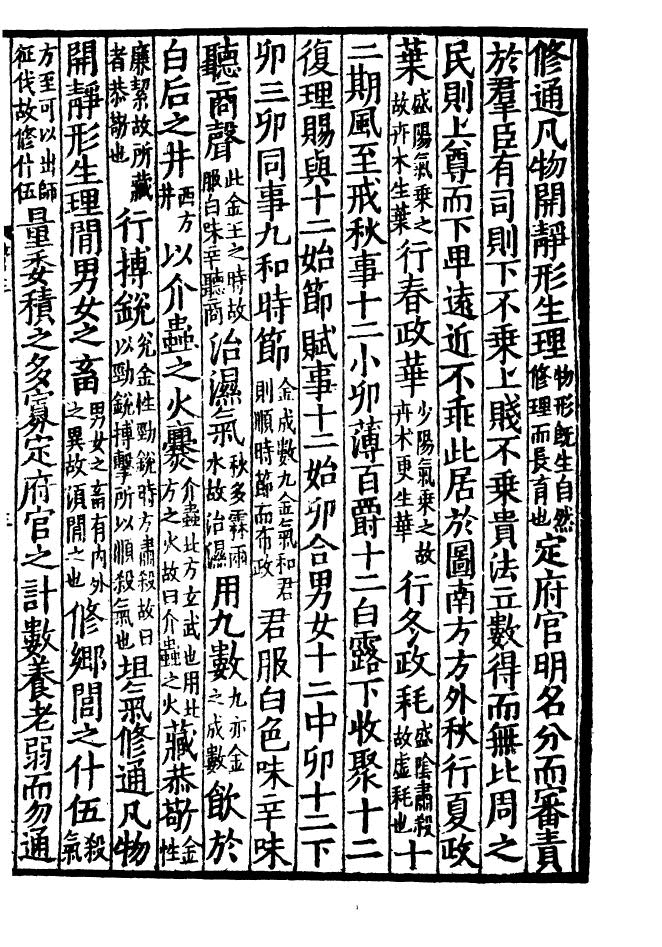 修通凡物開靜形生理物形既生自然修理而長育也定府官明名分而審責
於羣臣有司則下不乘上賤不乘貴法立數得而無比周之
民則上尊而下卑遠近不乖此居於圖南方方外秋行夏政
葉盛陽氣乘之故卉木生葉行春政華少陽氣乘之故卉木更生華行冬政耗盛陰肅殺故虛耗也十
二期風至戒秋事十二小卯薄百爵十二白露下收聚十二
復理賜與十二始節賦事十二始卯合男女十二中卯十二下
卯三卯同事九和時節金成數九金氣和君則順時節而布政君服白色味辛味
聽商聲此金王之時故服白味辛聽商治濕氣秋多霖雨水故治濕用九數九亦金之成數飲於
白后之井西方井以介蟲之火爨介蟲北方玄武也用北方之火故曰介蟲之火藏恭敬金性
廉絜故所藏者恭敬也行搏銳兌金性勁銳時方肅殺故曰以勁銳搏擊所以順殺氣也坦氣修通凡物
開靜形生理閒男女之畜男女之畜有內外之異故須閒之也修鄉閭之什伍殺氣
方至可以出師征伐故修什伍量委積之多寡定府官之計數養老弱而勿通